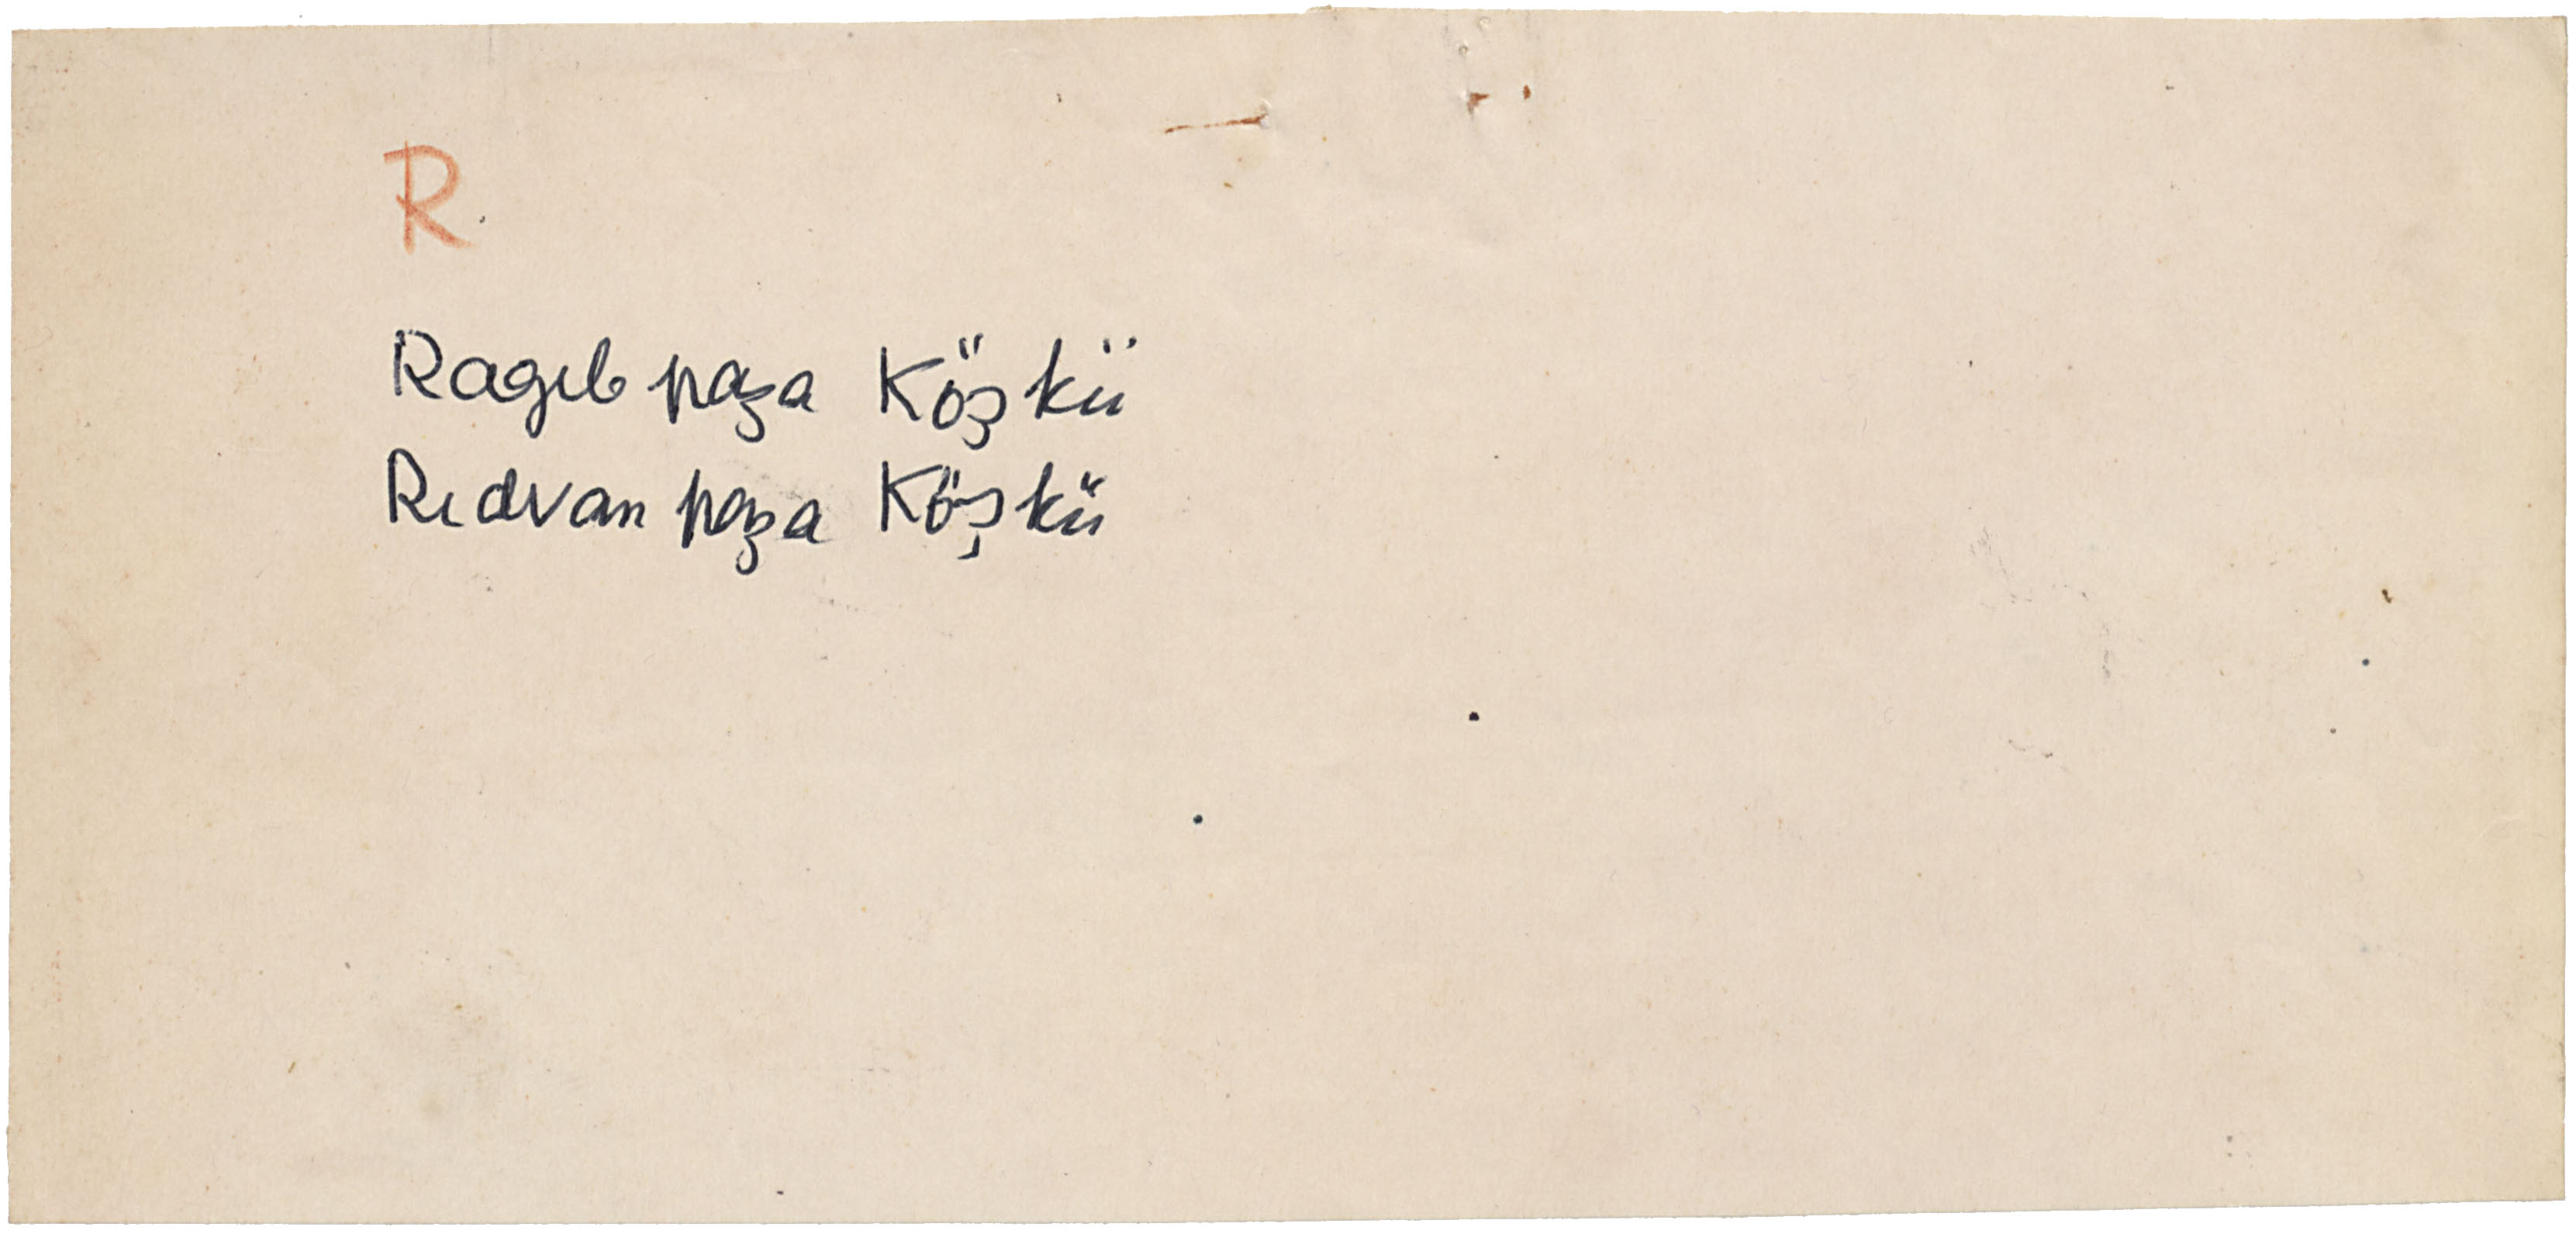 R
Ragıb paşa Köşkü
Rıdvan paşa Köşkü